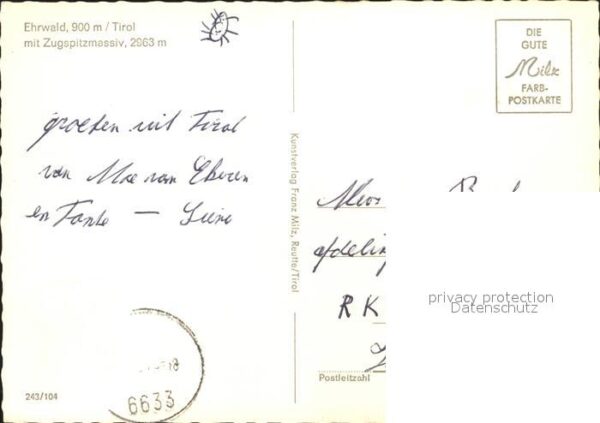 Ehrwald, 900 m / Tirol
mit Zugspitzmassiv, 2963 m
DIE
GUTE
Milz
FARB-
POSTKARTE
groeten uit Tirol
van Moe van
en Tante —
Kunstverlag Franz Milz, Reutte/Tirol
afdelin
RK
privacy protection
Datenschutz
Postleitzahl
6633
243/104